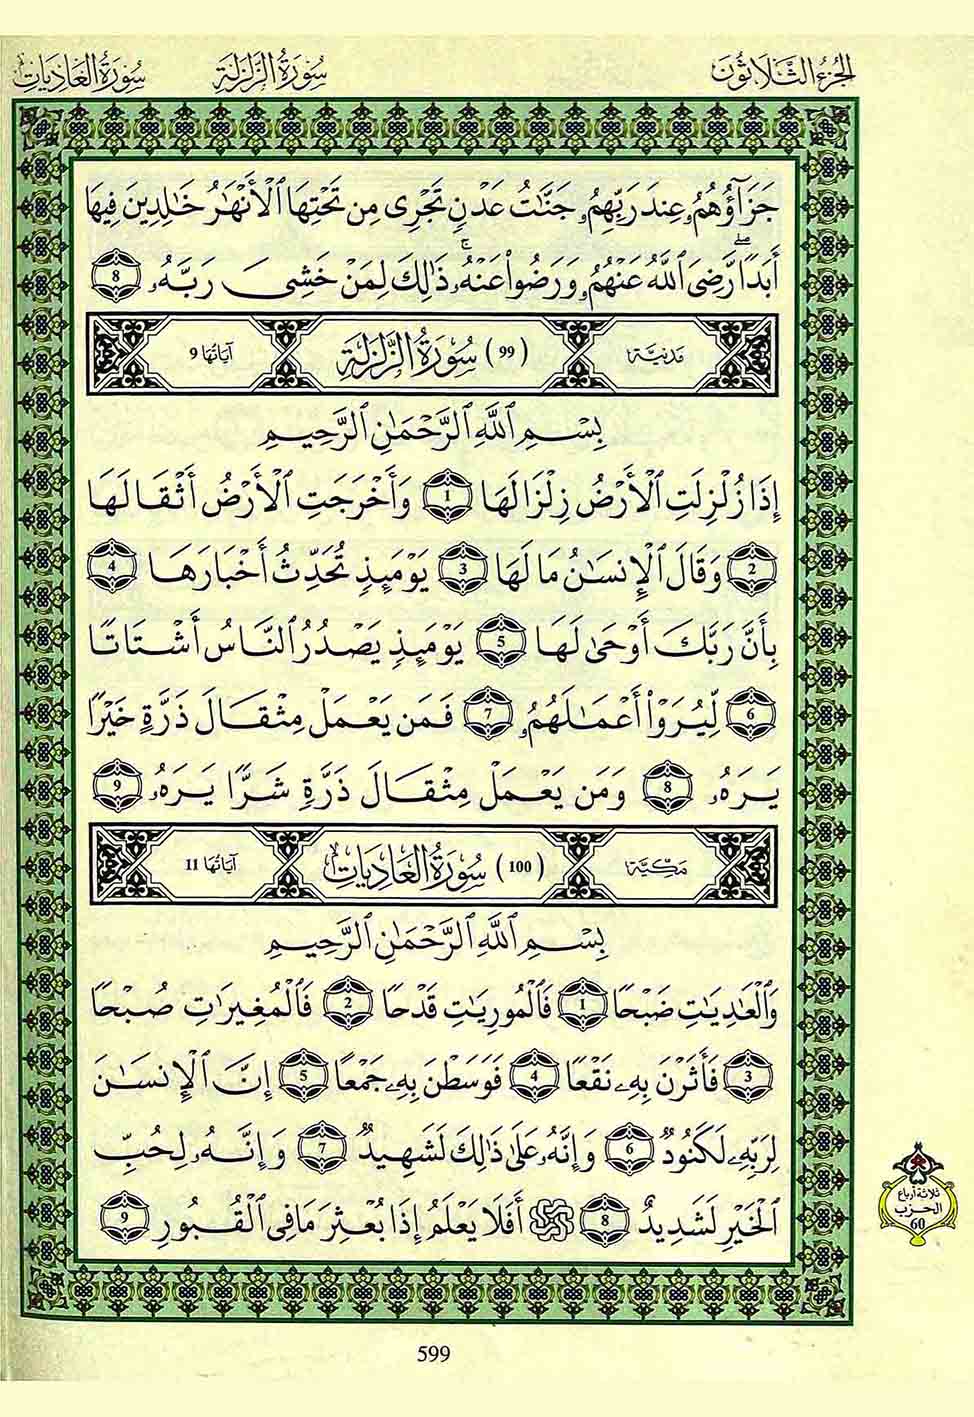 الجزء الثلاثون سورة الزلزلة سورة العاديات
جَزَآؤُهُمُۥ عِندَ رَبِّهِمُۥ جَنَّٰتُ عَدۡنٖ تَجۡرِي مِن تَحۡتِهَا ٱلۡأَنۡهَٰرُ خَٰلِدِينَ فِيهَآ
أَبَدٗاۖ رَّضِيَ ٱللَّهُ عَنۡهُمُۥ وَرَضُواْ عَنۡهُۥۚ ذَٰلِكَ لِمَنۡ خَشِيَ رَبَّهُۥ 8
مدنية (99) سورة الزلزلة آياتها 9
بِسۡمِ ٱللَّهِ ٱلرَّحۡمَٰنِ ٱلرَّحِيمِ
إِذَا زُلۡزِلَتِ ٱلۡأَرۡضُ زِلۡزَالَهَا 1 وَأَخۡرَجَتِ ٱلۡأَرۡضُ أَثۡقَالَهَا
2 وَقَالَ ٱلۡإِنسَٰنُ مَا لَهَا 3 يَوۡمَئِذٖ تُحَدِّثُ أَخۡبَارَهَا 4
بِأَنَّ رَبَّكَ أَوۡحَىٰ لَهَا 5 يَوۡمَئِذٖ يَصۡدُرُ ٱلنَّاسُ أَشۡتَاتٗا
6 لِّيُرَوۡاْ أَعۡمَٰلَهُمُۥ 7 فَمَن يَعۡمَلۡ مِثۡقَالَ ذَرَّةٍ خَيۡرٗا
يَرَهُۥ 8 وَمَن يَعۡمَلۡ مِثۡقَالَ ذَرَّةٖ شَرّٗا يَرَهُۥ 9
مكية (100) سورة العاديات آياتها 11
بِسۡمِ ٱللَّهِ ٱلرَّحۡمَٰنِ ٱلرَّحِيمِ
وَٱلۡعَٰدِيَٰتِ ضَبۡحٗا 1 فَٱلۡمُورِيَٰتِ قَدۡحٗا 2 فَٱلۡمُغِيرَٰتِ صُبۡحٗا
3 فَأَثَرۡنَ بِهِۦ نَقۡعٗا 4 فَوَسَطۡنَ بِهِۦ جَمۡعًا 5 إِنَّ ٱلۡإِنسَٰنَ
لِرَبِّهِۦ لَكَنُودٞ 6 وَإِنَّهُۥ عَلَىٰ ذَٰلِكَ لَشَهِيدٞ 7 وَإِنَّهُۥ لِحُبِّ
ٱلۡخَيۡرِ لَشَدِيدٌ 8 ۞ أَفَلَا يَعۡلَمُ إِذَا بُعۡثِرَ مَا فِي ٱلۡقُبُورِ 9
ثلاثة أرباع
الحزب
60
599